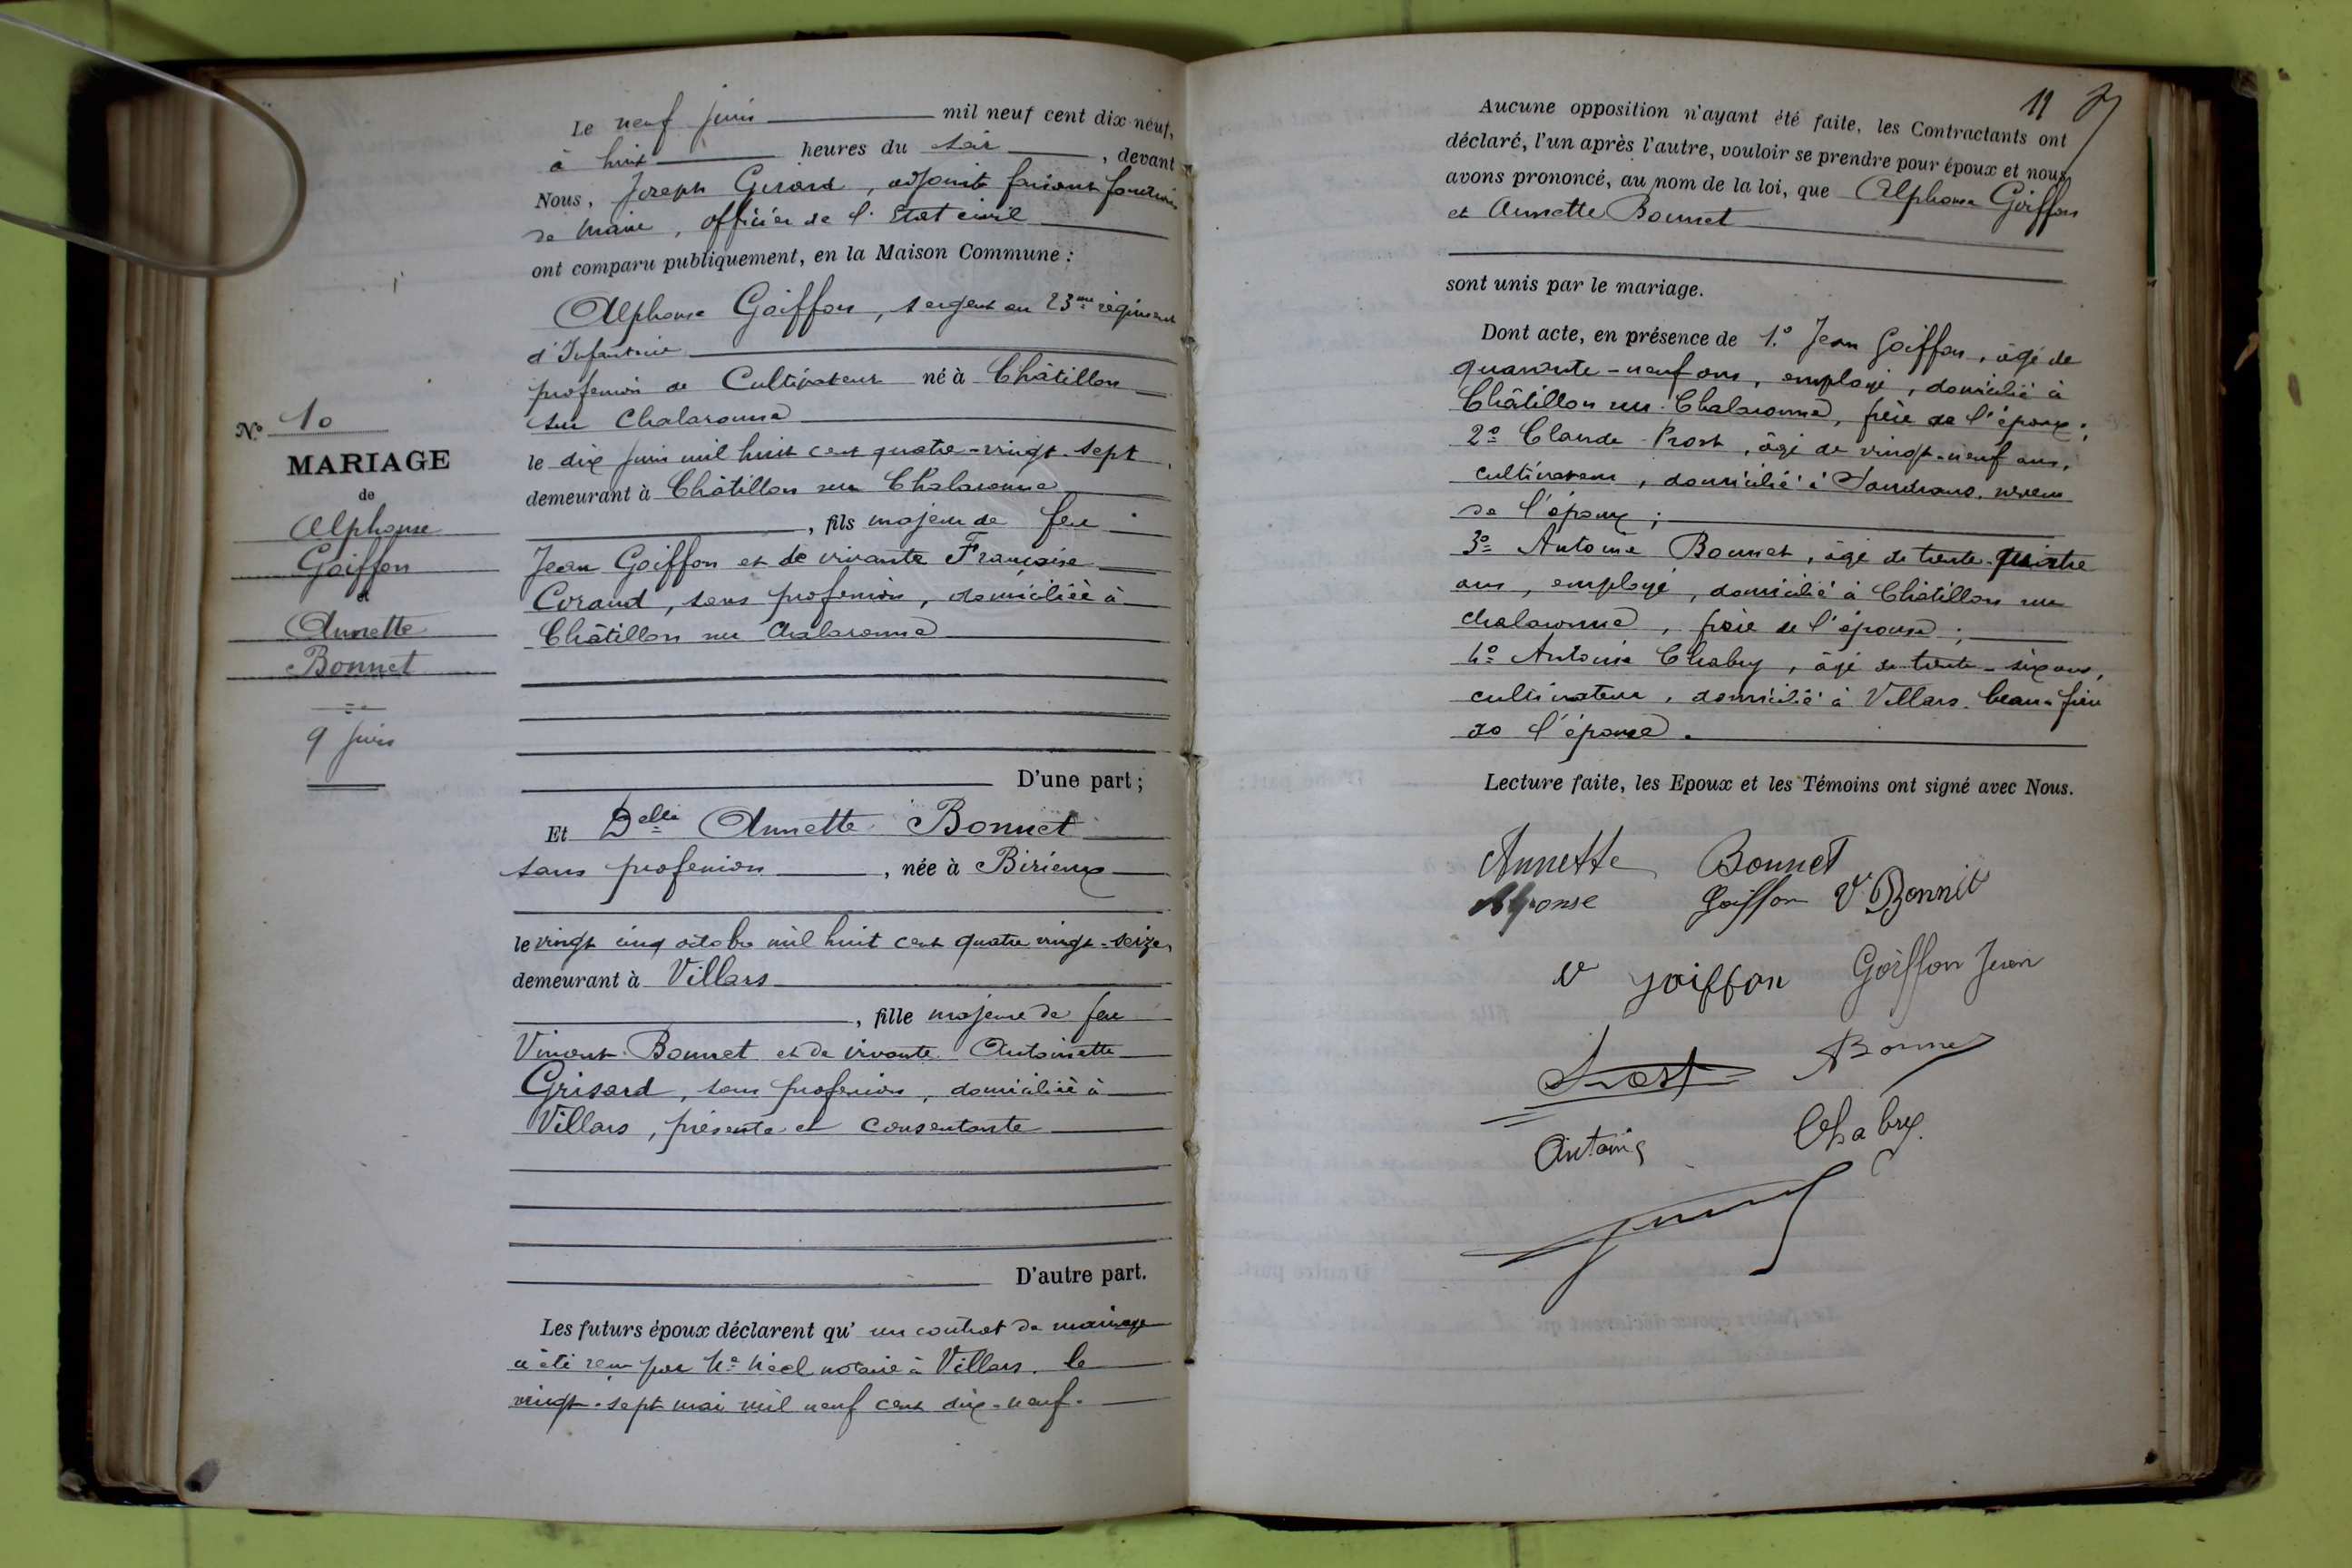 N° 10
MARIAGE
de
Alphonse
Goiffon
et
Annette
Bonnet
9 juin
Le neuf juin mil neuf cent dix neuf,
à huit heures du soir, devant
Nous, Joseph Girard, adjoint faisant fonctions
de Maire, officier de l'Etat civil
ont comparu publiquement, en la Maison Commune :
Alphonse Goiffon, sergent au 23me régiment
d'Infanterie
profession de Cultivateur né à Châtillon
sur Chalaronne
le dix juin mil huit cent quatre-vingt-sept,
demeurant à Châtillon sur Chalaronne
, fils majeur de feu
Jean Goiffon et de vivante Françoise
Coraud, sans profession, domiciliée à
Châtillon sur Chalaronne
D'une part ;
Et Delle Annette Bonnet
sans profession, née à Birieux
le vingt cinq octobre mil huit cent quatre vingt-seize,
demeurant à Villars
, fille majeure de feu
Vincent Bonnet et de vivante Antoinette
Grisard, sans profession, domiciliée à
Villars, présente et consentante
D'autre part.
Les futurs époux déclarent qu' un contrat de mariage
a été reçu par Me notaire à Villars, le
vingt-sept mai mil neuf cent dix-neuf.
11
Aucune opposition n'ayant été faite, les Contractants ont
déclaré, l'un après l'autre, vouloir se prendre pour époux et nous
avons prononcé, au nom de la loi, que Alphonse Goiffon
et Annette Bonnet
sont unis par le mariage.
Dont acte, en présence de 1° Jean Goiffon, âgé de
quarante-neuf ans, employé, domicilié à
Châtillon sur Chalaronne, frère de l'époux ;
2° Claude Prost, âgé de vingt-neuf ans,
cultivateur, domicilié à Sandrans, neveu
de l'époux ;
3° Antoine Bonnet, âgé de trente-quatre
ans, employé, domicilié à Châtillon sur
Chalaronne, frère de l'épouse ;
4° Antoine Chabry, âgé de trente-six ans,
cultivateur, domicilié à Villars, beau-frère
de l'épouse.
Lecture faite, les Epoux et les Témoins ont signé avec Nous.
Annette Bonnet
Alponse Goiffon Ve Bonnet
Ve goiffon Goiffon Jean
Prost ABonnet
Antoine Chabry